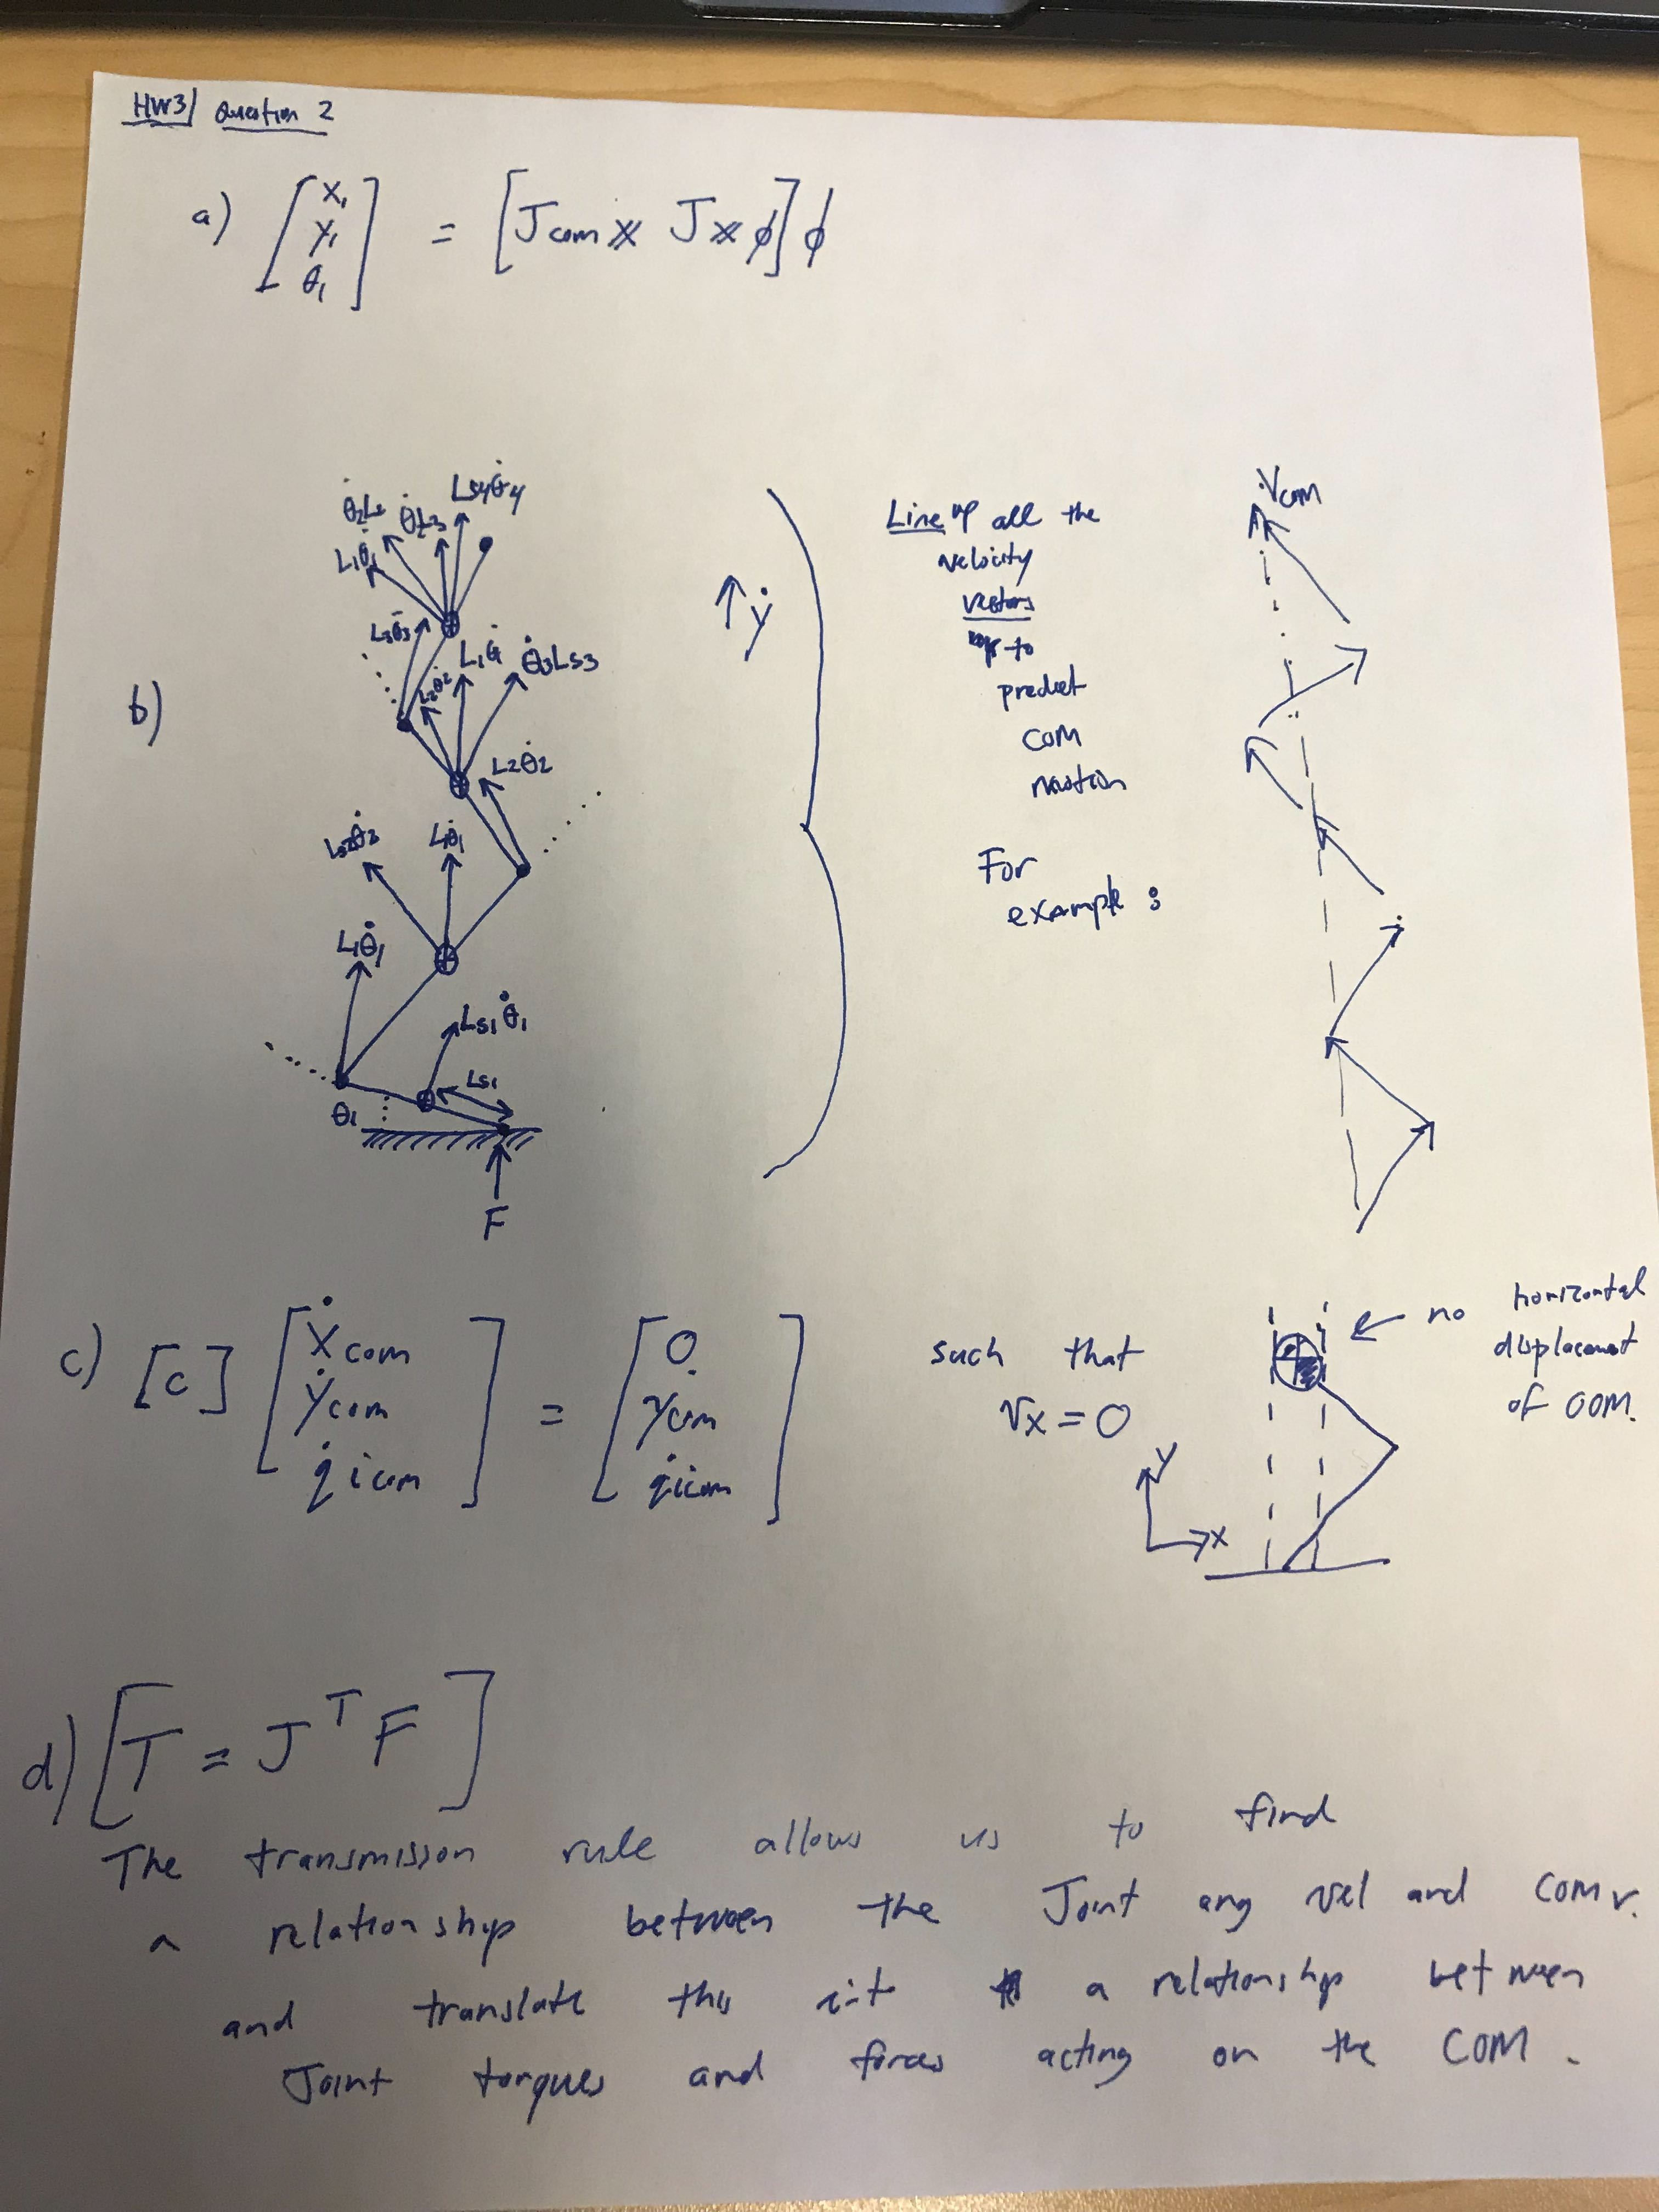 HW3/ Question 2
a) [x₁ y₁ θ₁] = [J com x J x ϕ] ϕ
b)
θ̇₂L₂ θ̇L₃ Ls4θ̇4
L₁θ̇₁
L₃θ̇₃
L₂θ̇₂ L₁θ̇ θ̇₃Ls3
L₂θ̇₂
Ls2θ̇₂ L₁θ̇₁
L₁θ̇₁
Ls₁θ̇₁
Ls₁
θ₁
F
↑ ẏ
Line up all the
velocity
vectors
to
predict
COM
motion
For
example :
V com
c) [c] [ẋ com ẏ com q̇ i com] = [0 ẏ com q̇ i com]
such that
vx = 0
y
x
← no horizontal
displacement
of COM.
d) [T = Jᵀ F]
The transmission rule allows us to find
a relationship between the Joint ang vel and com v.
and translate this int a relationship between
Joint torques and forces acting on the COM.